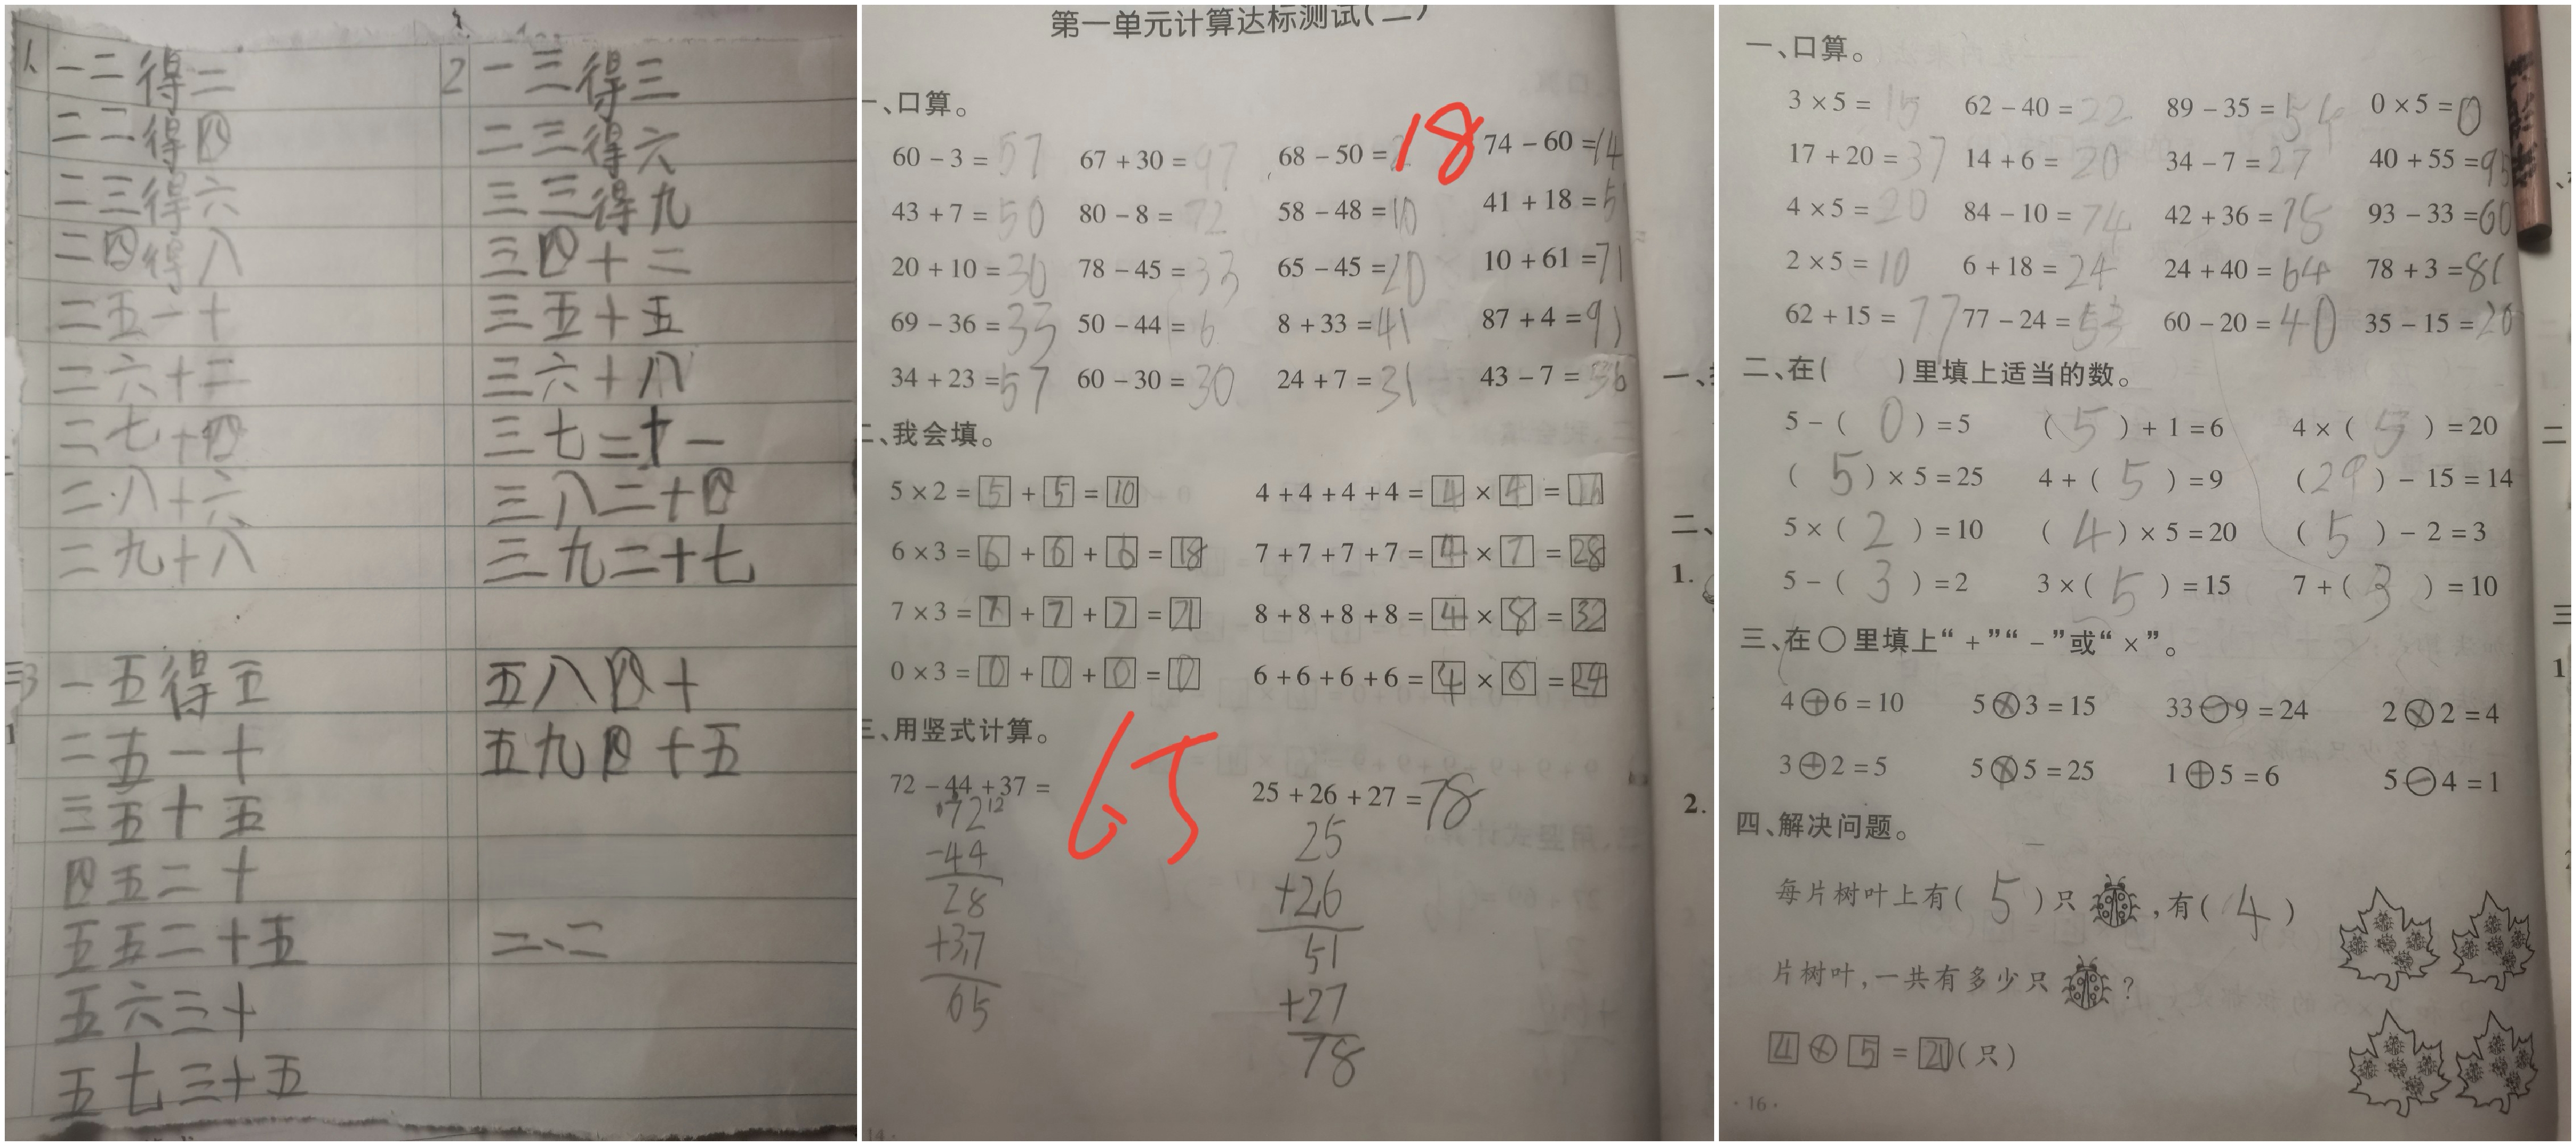 1. 一二得二
二二得四
二三得六
二四得八
二五一十
二六十二
二七十四
二八十六
二九十八
2 一三得三
二三得六
三三得九
三四十二
三五十五
三六十八
三七二十一
三八二十四
三九二十七
3 一五得五
二五一十
三五十五
四五二十
五五二十五
五六三十
五七三十五
五八四十
五九四十五
二、二
第一单元计算达标测试(二)
一、口算。
60-3=57 67+30=97 68-50=18 74-60=14
43+7=50 80-8=72 58-48=10 41+18=5
20+10=30 78-45=33 65-45=20 10+61=71
69-36=33 50-44=6 8+33=41 87+4=91
34+23=57 60-30=30 24+7=31 43-7=36
二、我会填。
5×2=5+5=10 4+4+4+4=4×4=16
6×3=6+6+6=18 7+7+7+7=4×7=28
7×3=7+7+7=21 8+8+8+8=4×8=32
0×3=0+0+0=0 6+6+6+6=4×6=24
三、用竖式计算。
72-44+37=65 25+26+27=78
72
-44
28
+37
65
25
+26
51
+27
78
14
一、
二、
1.
2.
一、口算。
3×5=15 62-40=22 89-35=54 0×5=0
17+20=37 14+6=20 34-7=27 40+55=95
4×5=20 84-10=74 42+36=75 93-33=60
2×5=10 6+18=24 24+40=64 78+3=81
62+15=77 77-24=53 60-20=40 35-15=20
二、在( )里填上适当的数。
5-(0)=5 (5)+1=6 4×(5)=20
(5)×5=25 4+(5)=9 (29)-15=14
5×(2)=10 (4)×5=20 (5)-2=3
5-(3)=2 3×(5)=15 7+(3)=10
三、在○里填上“+”“-”或“×”。
4+6=10 5×3=15 33-9=24 2×2=4
3+2=5 5×5=25 1+5=6 5-4=1
四、解决问题。
每片树叶上有(5)只,有(4)
片树叶,一共有多少只?
4×5=20(只)
·16·
二
三
1